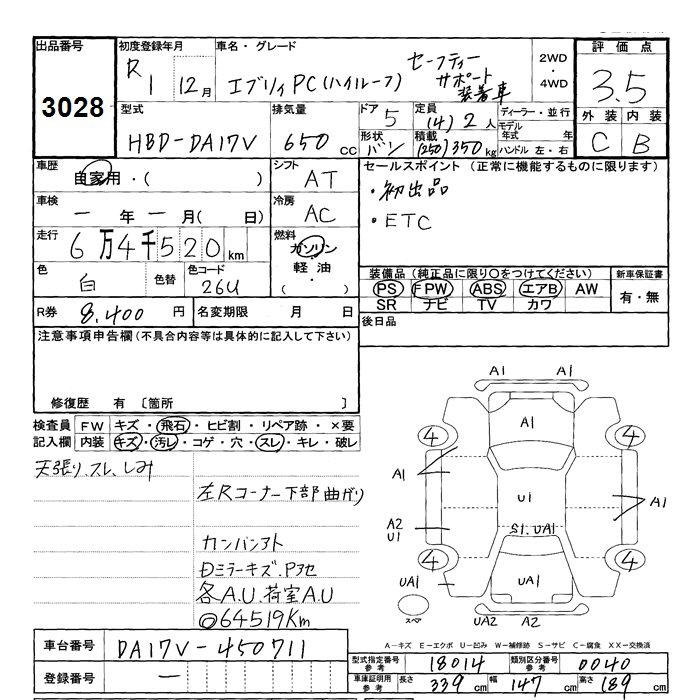 出品番号 初度登録年月 車名・グレード 評価点
3028 R1 12月 エブリィPC(ハイルーフ) セーフティー サポート 装着車 2WD・4WD 3.5
外装 内装
C B
型式 排気量 ドア 定員 ディーラー・並行
HBD-DA17V 650cc 5 (4)2人 モデル年式 年
形状 積載 ハンドル 左・右
バン (250)350kg
車歴 自家用・( ) シフト AT
セールスポイント(正常に機能するものに限ります)
・初出品
・ETC
車検 ー年ー月( 日) 冷房 AC
走行 6万4千520km 燃料 ガソリン・軽油・( )
色 白 色替 色コード 26U
装備品(純正品に限り○をつけてください) 新車保証書
PS PW ABS エアB AW 有・無
SR ナビ TV カワ
R券 8,400円 名変期限 月 日
後日品
注意事項申告欄(不具合内容等は具体的に記入して下さい)
修復歴 有 〔箇所
検査員 FW キズ・飛石・ヒビ割・リペア跡・×要
記入欄 内装 キズ・汚レ・コゲ・穴・スレ・キレ・破レ
天張り、スレ、しみ
左Rコーナー下部曲がり
カンバンアト
Dミラーキズ.Pアセ
各A.U.荷室A.U
◎64519Km
A1
A1
4 4
A1 A1
U1
A2
U1
S1.UA1
4 4
UA1 UA1
スペア
UA2 A2
A-キズ E-エクボ U-凹み W-補修跡 S-サビ C-腐食 XX-交換済
車台番号 DA17V-450711
型式指定番号参考 18014 類別区分番号参考 0040
登録番号 ー
車庫証明用参考 長さ 339cm 幅 147cm 高さ 189cm